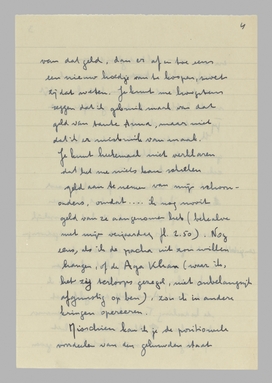 4
van dat geld, dan er af en toe eens
een nieuw hoedje om te koopen, moet
zij dat weten. Je kunt me hoogstens
zeggen dat ik gebruik maak van dat
geld van tante Anna, maar niet
dat ik er misbruik van maak.
Je kunt heelemaal niet verklaren
dat het me niets kan schelen
geld aan te nemen van mijn schoon-
ouders, omdat .... ik nog nooit
geld van ze aangenomen heb (behalve
met mijn verjaardag fl. 2.50). Nog
eens, als ik de pacha uit zou willen
hangen, of de Aga Khan (waar ik,
het zij terloops gezegd, niet onbelangrijk
afgunstig op ben), zou ik in andere
kringen opereeren.
Misschien kan ik je de positieve
voordelen van een gebonden staat